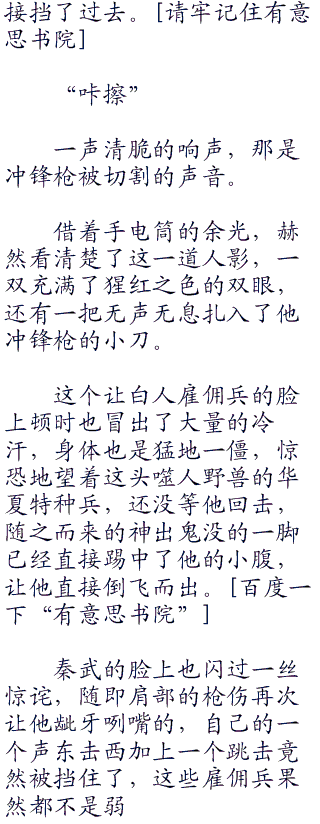 接挡了过去。[请牢记住有意
思书院]
“咔擦”
一声清脆的响声，那是
冲锋枪被切割的声音。
借着手电筒的余光，赫
然看清楚了这一道人影，一
双充满了猩红之色的双眼，
还有一把无声无息扎入了他
冲锋枪的小刀。
这个让白人雇佣兵的脸
上顿时也冒出了大量的冷
汗，身体也是猛地一僵，惊
恐地望着这头噬人野兽的华
夏特种兵，还没等他回击，
随之而来的神出鬼没的一脚
已经直接踢中了他的小腹，
让他直接倒飞而出。[百度一
下“有意思书院”]
秦武的脸上也闪过一丝
惊诧，随即肩部的枪伤再次
让他龇牙咧嘴的，自己的一
个声东击西加上一个跳击竟
然被挡住了，这些雇佣兵果
然都不是弱